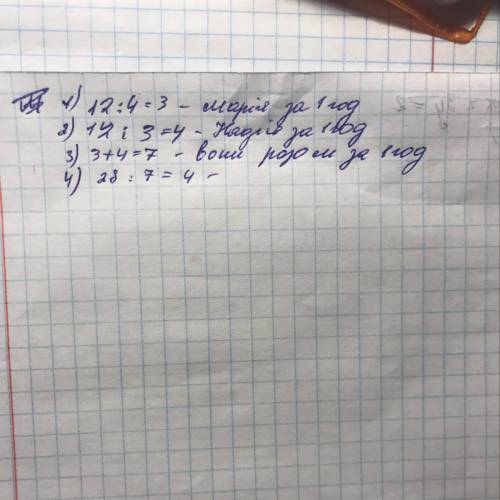 1) 12 : 4 = 3 - Марія за 1 год
2) 12 : 3 = 4 - Надія за 1 год
3) 3 + 4 = 7 - вони розом за 1 год
4) 28 : 7 = 4 -